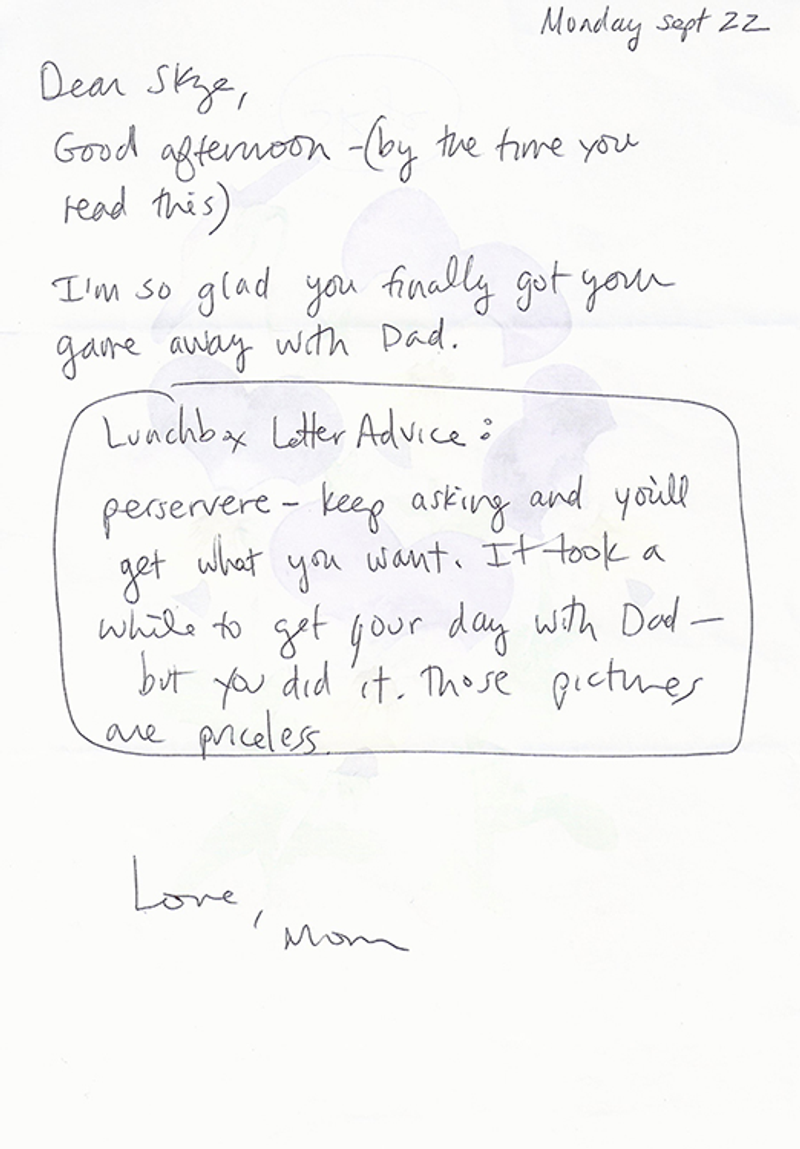 Monday sept 22
Dear Skye,
Good afternoon - (by the time you
read this)
I'm so glad you finally got your
game away with Dad.
Lunchbox Letter Advice:
perservere - keep asking and you'll
get what you want. It took a
while to get your day with Dad -
but you did it. Those pictures
are priceless.
Love,
Mom